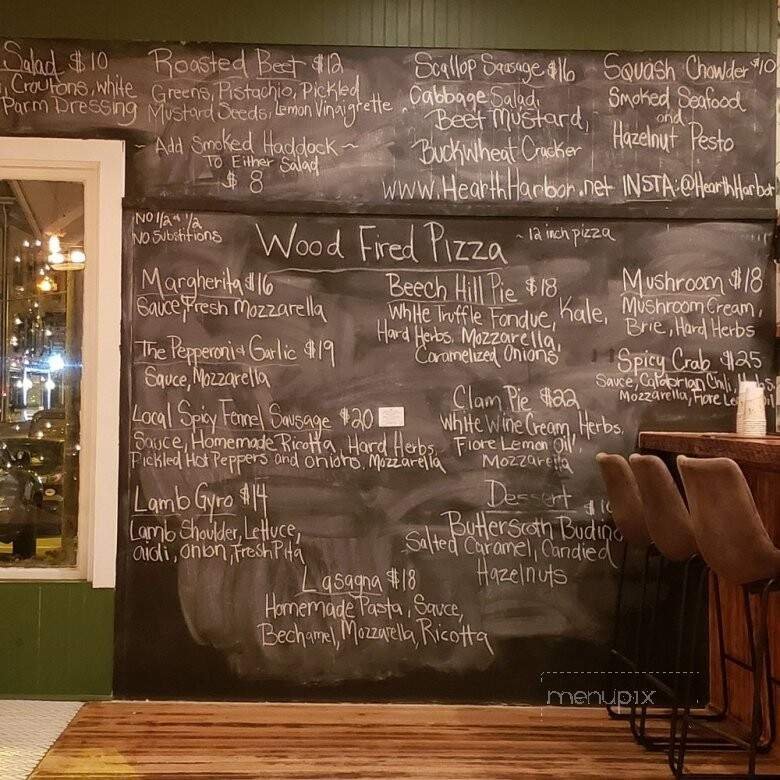 Salad $10
, Croutons, white
Parm Dressing
Roasted Beet $12
Greens, Pistachio, Pickled
Mustard Seeds, Lemon Vinaigrette
~ Add Smoked Haddock ~
To Either Salad
$8
Scallop Sausage $16
Cabbage Salad,
Beet Mustard,
Buckwheat Cracker
Squash Chowder $10
Smoked Seafood
and
Hazelnut Pesto
www.HearthHarbor.net INSTA:@HearthHarbor
No 1/2 & 1/2
No Substitions
Wood Fired Pizza
~ 12 inch pizza
Margherita $16
Sauce, Fresh Mozzarella
The Pepperoni & Garlic $19
Sauce, Mozzarella
Local Spicy Fennel Sausage $20
Sauce, Homemade Ricotta, Hard Herbs,
Pickled Hot Peppers and onions, Mozzarella
Lamb Gyro $14
Lamb Shoulder, Lettuce,
aioli, onion, Fresh Pita
Beech Hill Pie $18
White Truffle Fondue, Kale,
Hard Herbs, Mozzarella,
Caramelized Onions
Clam Pie $22
White Wine Cream, Herbs,
Fiore Lemon Oil,
Mozzarella
Mushroom $18
Mushroom Cream,
Brie, Hard Herbs
Spicy Crab $25
Sauce, Calabrian Chili,
Mozzarella, Fiore Lemon
Dessert
Butterscoth Buding
Salted Caramel, Candied
Hazelnuts
Lasagna $18
Homemade Pasta, Sauce,
Bechamel, Mozzarella, Ricotta
menupix